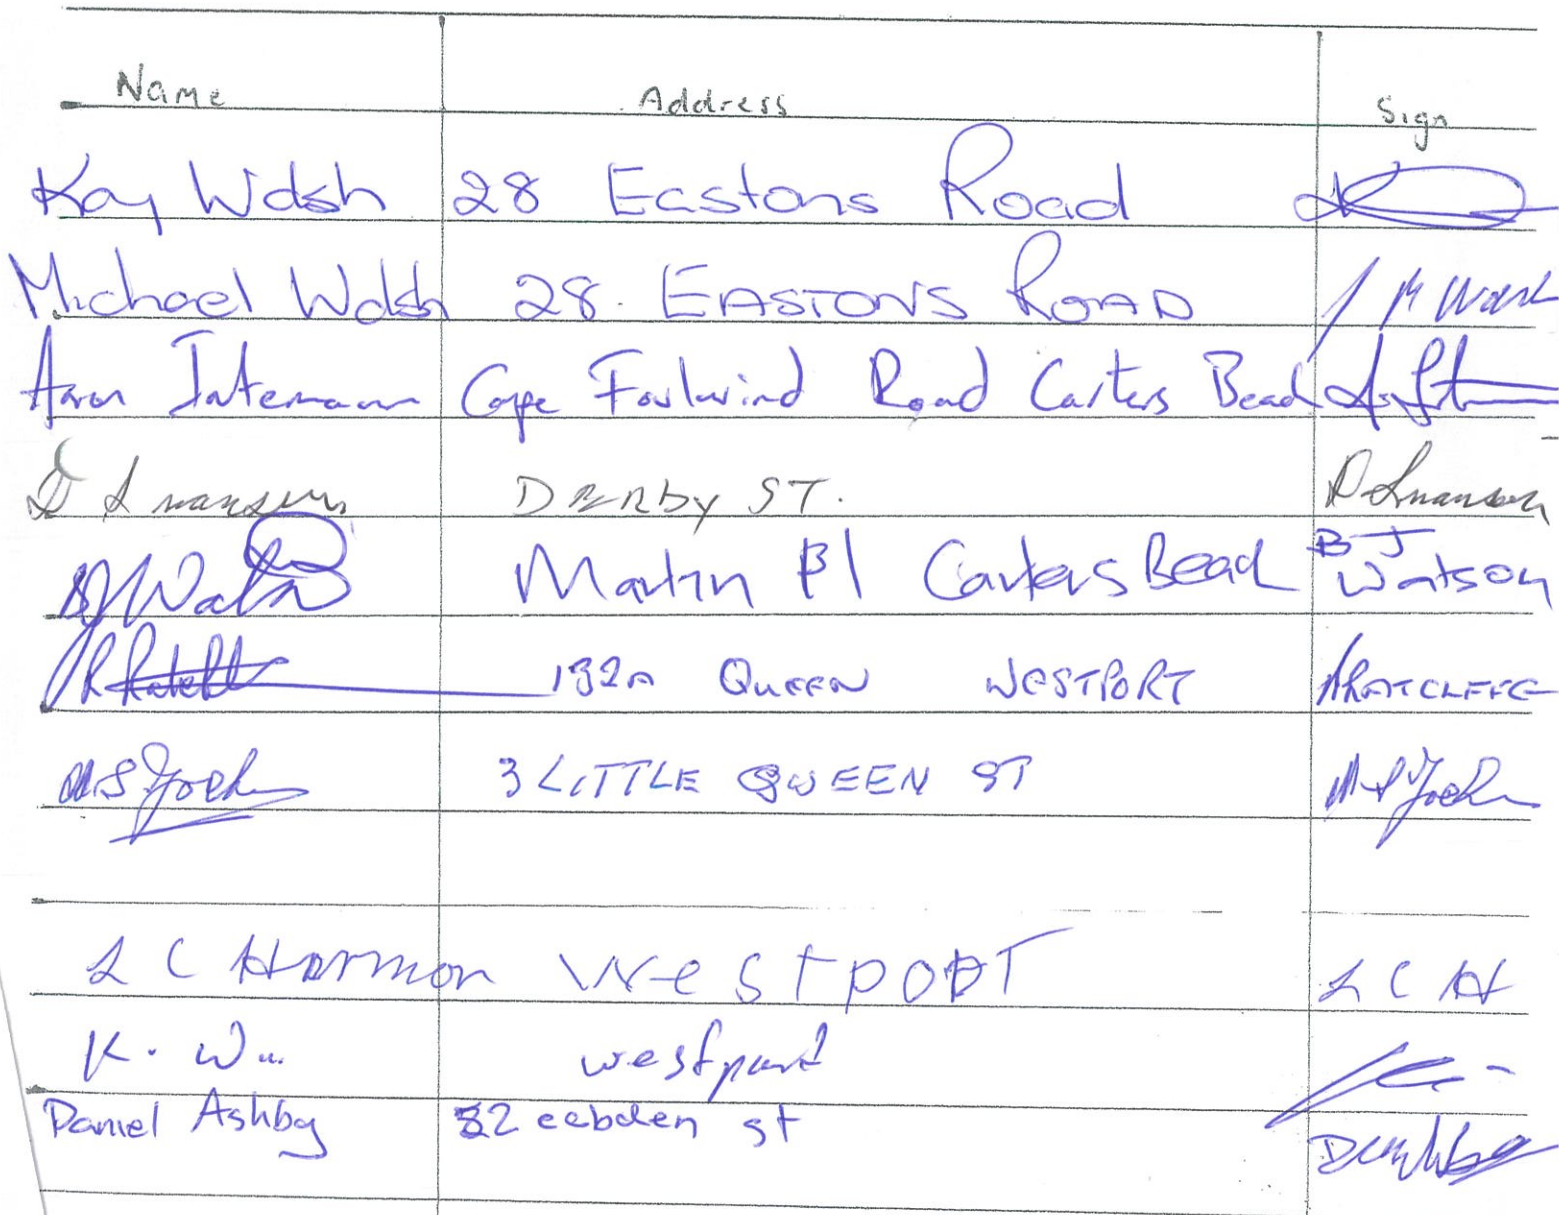 Name Address Sign
Kay Walsh 28 Eastons Road
Michael Walsh 28. EASTONS ROAD M Walsh
Aaron Intemann Cape Foulwind Road Carters Beach
D Swanson DERBY ST. D Swanson
BJ Watson Martin Pl Carters Beach B J Watson
132A QUEEN WESTPORT RATCLIFFE
3 LITTLE QUEEN ST
L C Harmon WestPORT L C H
K. Wu westport
Daniel Ashby 32 eebden st